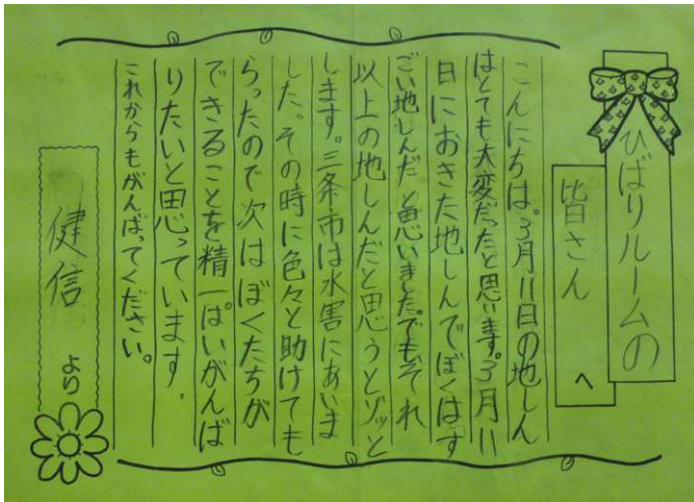 ひばりルームの
皆さん へ
こんにちは。3月11日の地しん
はとても大変だったと思います。3月11
日におきた地しんでぼくはす
ごい地しんだと思いました。でもそれ
以上の地しんだと思うとゾッと
します。三条市は水害にあいま
した。その時に色々と助けても
らったので次はぼくたちが
できることを精一ぱいがんば
りたいと思っています。
これからもがんばってください。
健信 より